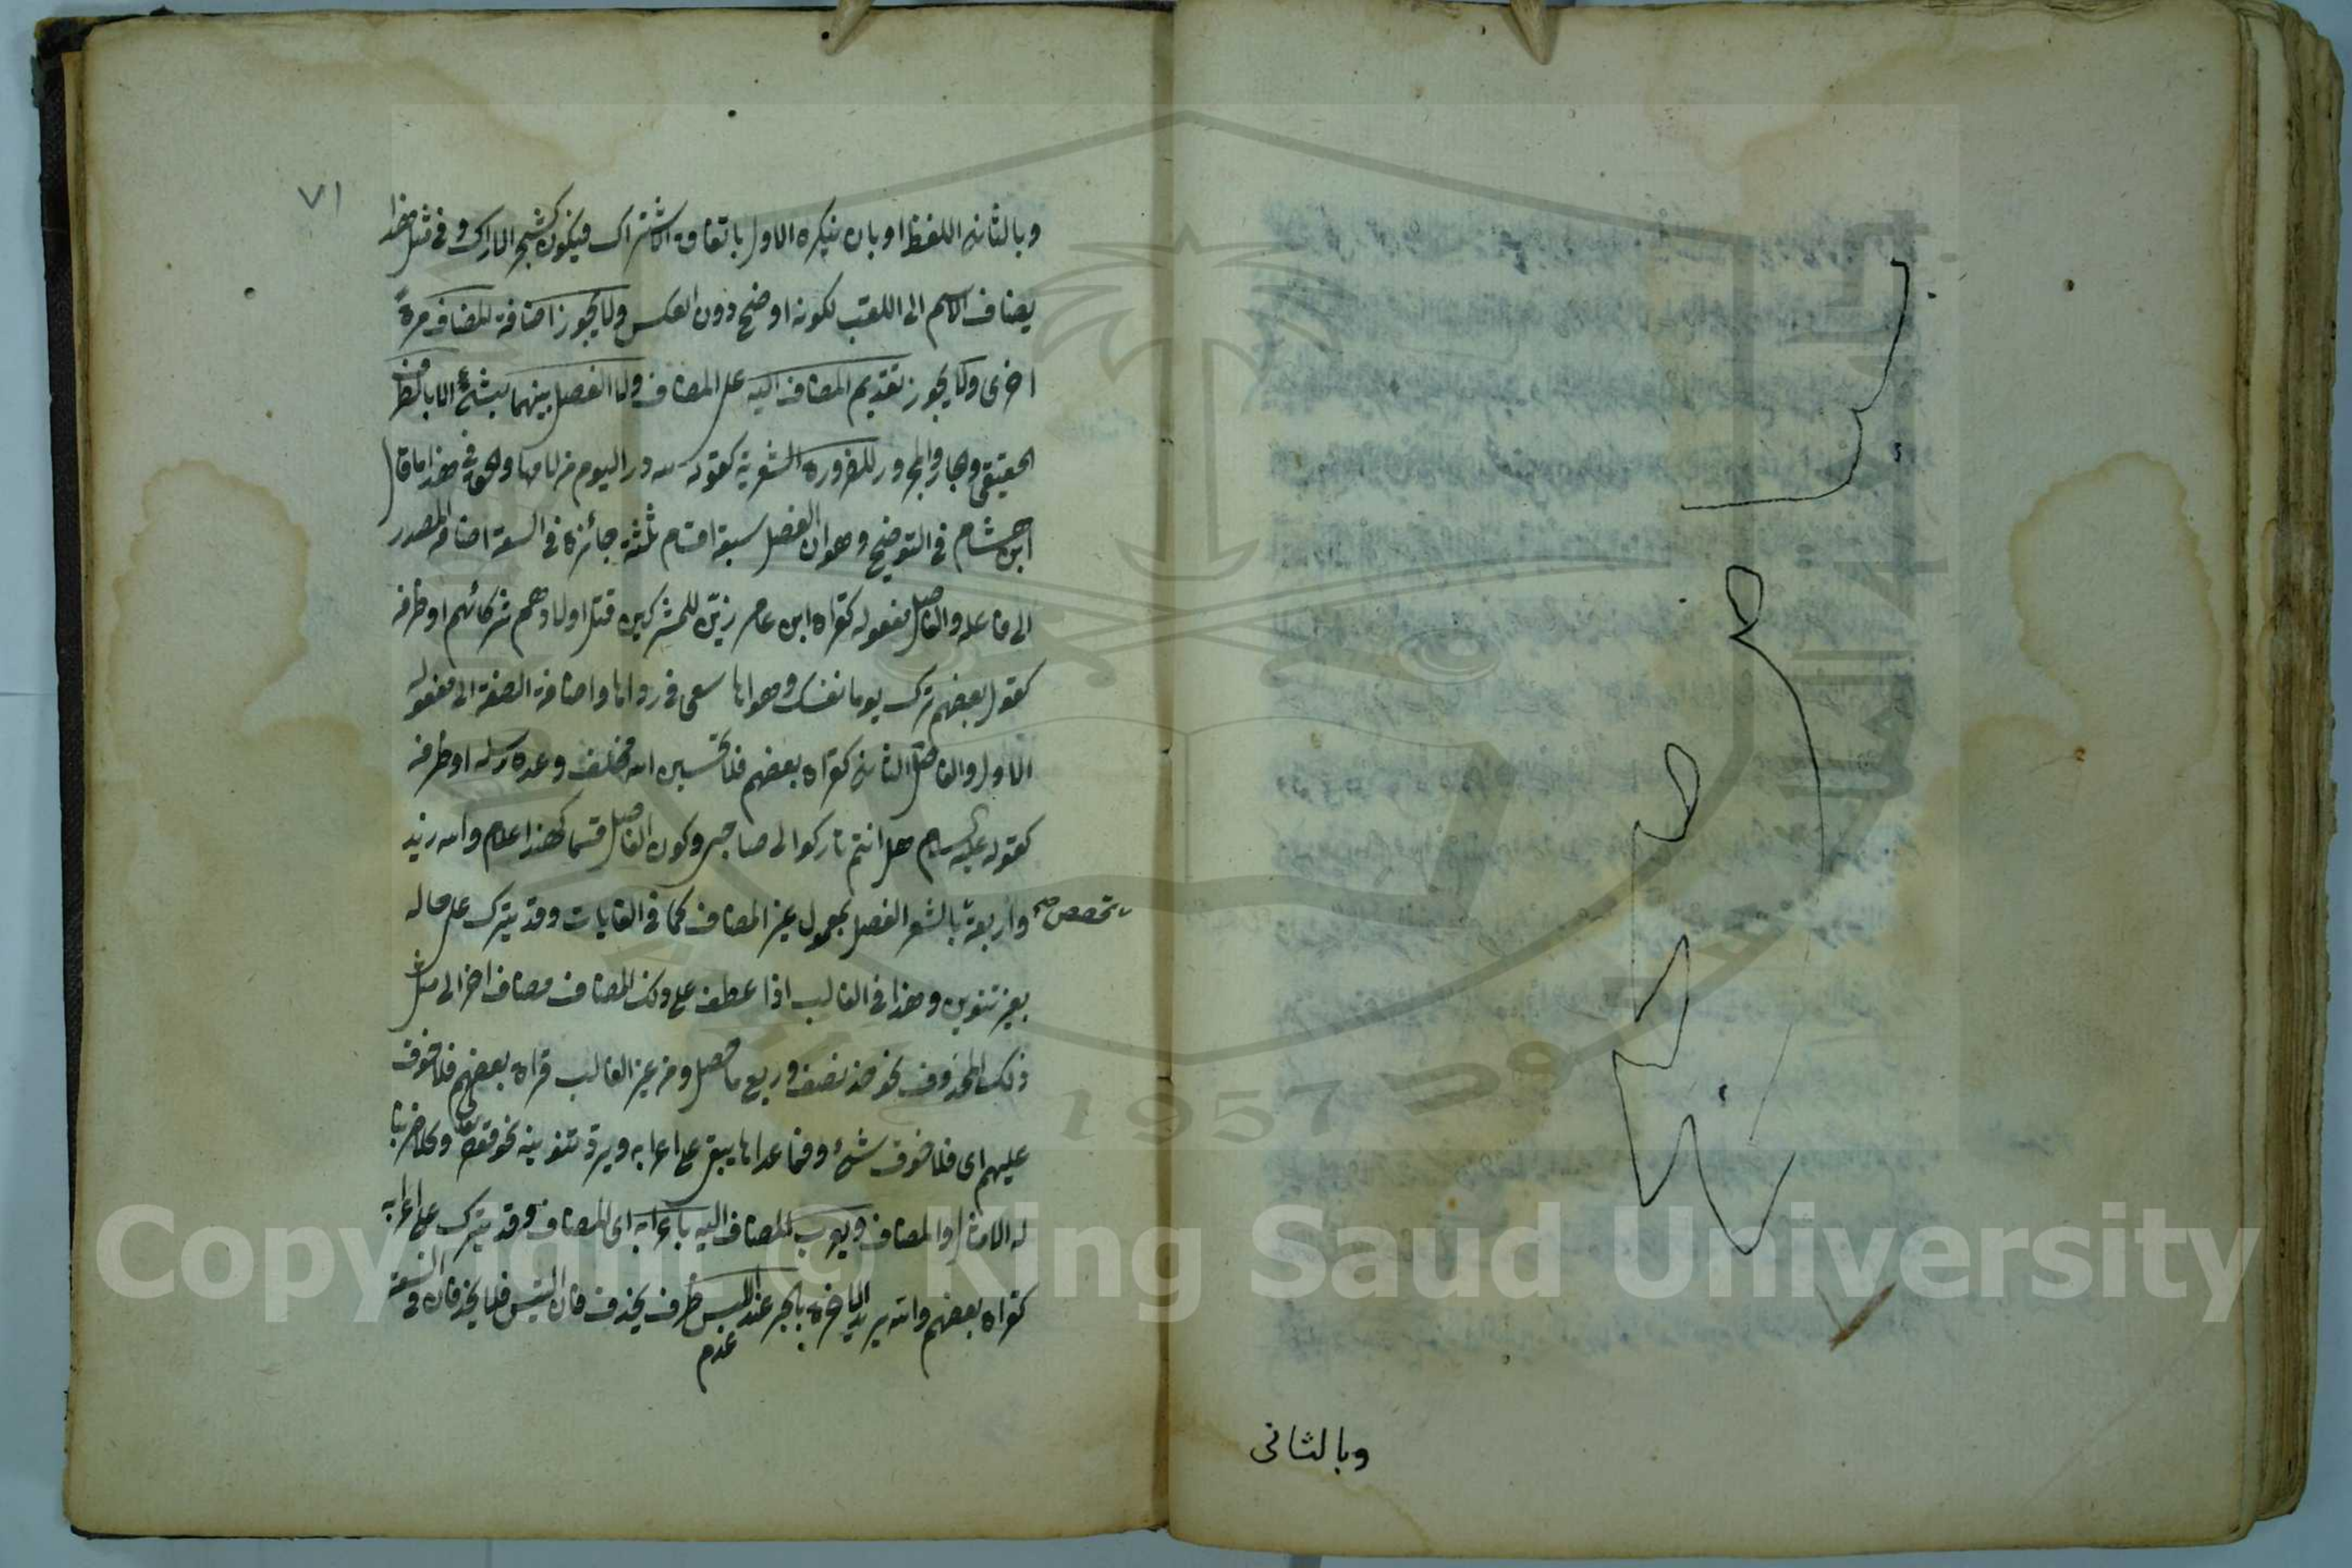 وبالثاني
٧١
وبالثاني اللفظ او بان ينكره الاول باتفاق الاشتراك فيكون كشجر الاراك وفي مثل هذا
يضاف الاسم الى اللقب لكونه اوضح دون العكس ولا يجوز اضافة المضاف مرة
اخرى ولا يجوز تقديم المضاف اليه على المضاف ولا الفصل بينهما بشئ الا بالظرف
الحقيقي والجار والمجرور للضرورة الشعرية كقوله لله در اليوم من لامها والحق في هذا ما قال
ابن هشام في التوضيح وهو ان الفصل سبعة اقسام ثلثة جائزة في السعة اضافة المصدر
الى فاعله والفاصل مفعوله كقراة ابن عامر زين للمشركين قتل اولادهم شركائهم او ظرفه
كقول بعضهم ترك يوما نفسك وهواها سعى في رداها واضافة الصفة الى مفعوله
الاول والفاصل الثاني كقراة بعضهم فلا تحسبن الله مخلف وعده رسله او ظرفه
كقوله عليه السلام هل انتم تاركوا لى صاحبى وكون الفاصل قسما كهذا غلام والله زيد
واربعة تختص صح بالشعر الفصل بمعمول غير المضاف كما في الغايات وقد يترك على حاله
بغير تنوين وهذا في الغالب اذا عطف على ذلك المضاف مضاف اخر الى مثل
ذلك المحذوف نحو خذ نصف وربع ما حصل ومن غير الغالب قراة بعضهم فلا خوف
عليهم اى فلا خوف شئ وفيما عداها يبقى على اعرابه ويرد تنوينه نحو قوله تعالى وكلا ضربنا
له الامثال والمضاف ويعرب المضاف اليه باعرابه اى المضاف وقد يترك على اعرابه
كقراة بعضهم والله يريد الاخرة بالجر عند عدم اللبس ظرف يحذف فان التبس فلا يحذفان في السعة